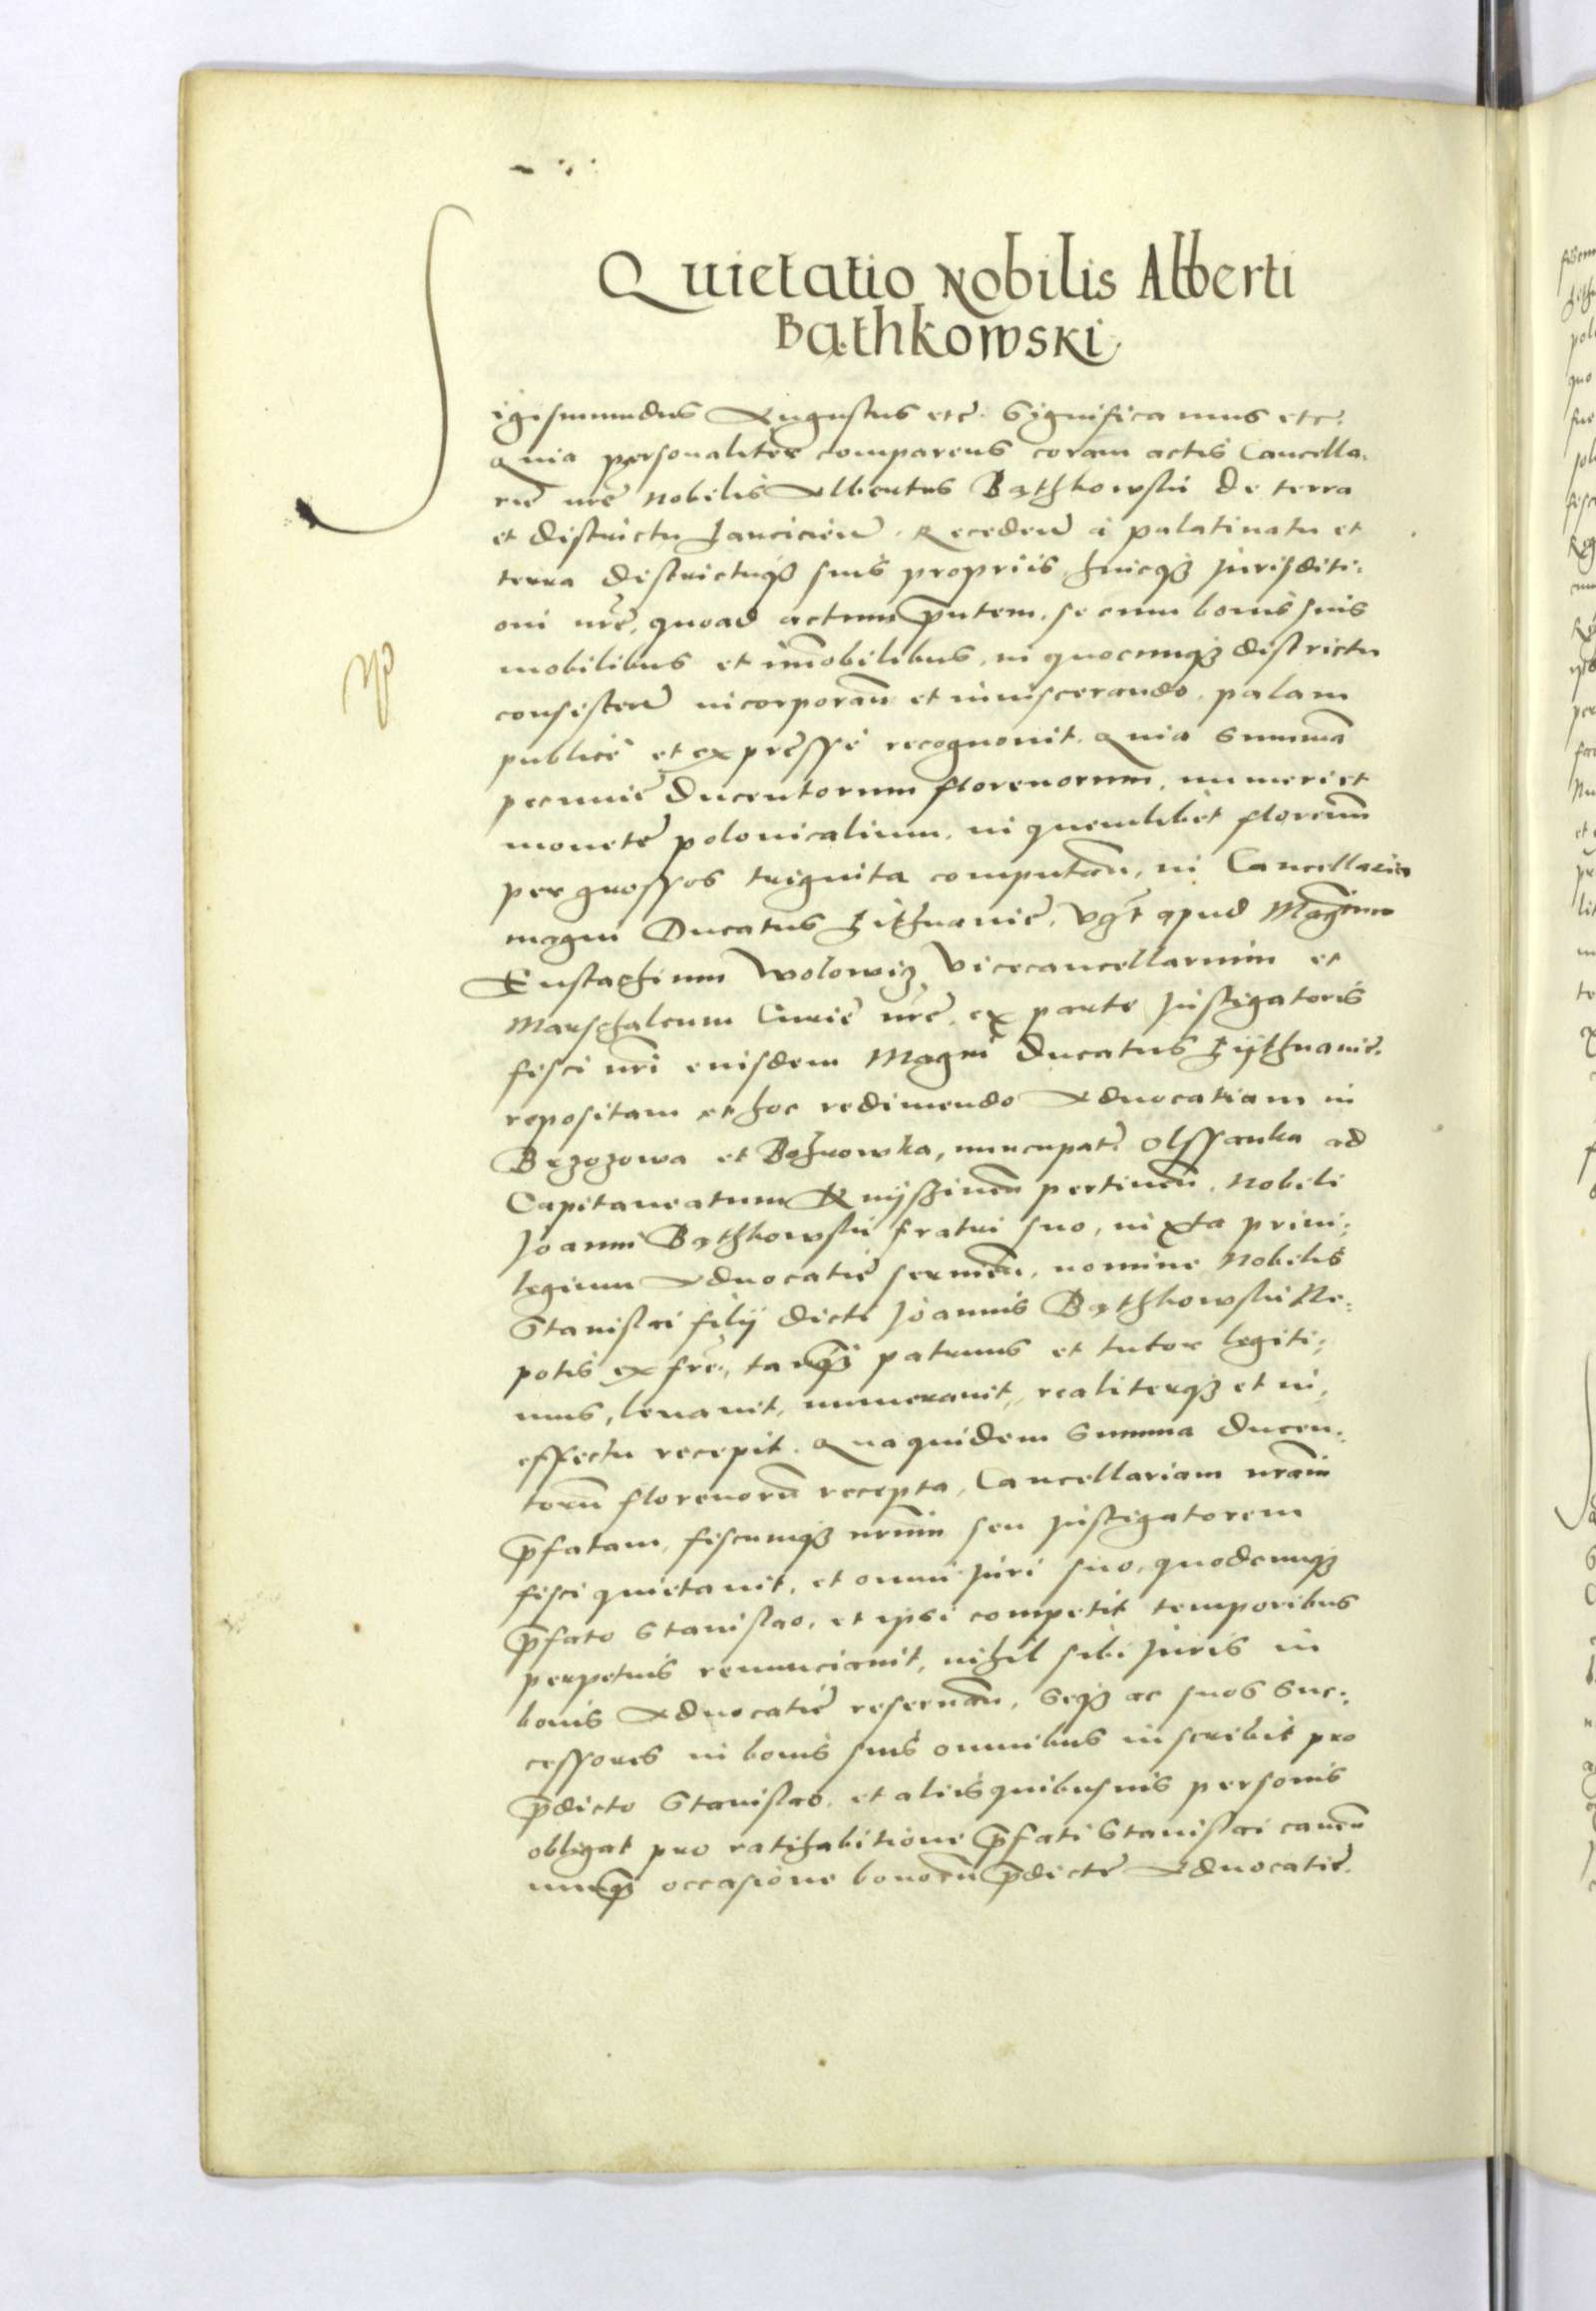 Quietatio Nobilis Alberti
Bathkowski
Sigismundus Augustus etc. Significamus etc.
Quia personaliter comparens coram actis Cancella-
rie nrẽ Nobilis Albertus Bąthkowski de terra
et districtu Lancicień. Recedeñ à palatinatu et
terra districtuq3 suis propriis, huicq3 Jurisditi-
oni nrẽ, quoad actum p̃ntem, se cum bonis suis
mobilibus et im̃obilibus, in quocunq3 districtu
consisteñ incorporañ et inviscerando, palam
publicè et expressè recognovit. Quia summã
pecuniẽ Ducentorum florenorum, numeri et
monetẽ polonicalium, in quemlibet florenũ
per grossos triginta computañ, in Cancellaria
magni Ducatus Lithuaniẽ, vg̃t apud Mag̃cum
Eustachium Wolowicz, Vicecancellarium et
Marschalcum Curiẽ nrẽ, ex parte Instigatoris
fisci nr̃i eiusdem Magni Ducatus Lythuaniẽ.
repositam et hoc redimendo Advocatiam in
et nuncupatẽ Olssanka ad
Capitaneatum pertineñ. Nobili
Joanni Bąthkowski fratri suo, iuxta privi-
legium Advocatiẽ servieñ, nomine Nobilis
Stanislai filij dicti Joannis Bąthkowski Ne-
potis ex frẽ, tanq̃3 patruus et tutor legiti-
mus, levavit, numeravit, realiterq3 et in
effectu recepit. Qua quidem Summa Ducen-
torũ florenorũ recepta, Cancellariam nrãm
p̃fatam, fiscumq3 nrũm seu Instigatorem
fisci quietavit, et omni Juri suo, quodcunq3
p̃fato Stanislao, et ipsi competit temporibus
perpetuis renunciavit, nihil sibi Juris in
bonis Advocatiẽ reservañ, Seq3 ac suos Suc-
cessores in bonis suis omnibus inscribit pro
p̃dicto Stanislao, et aliis quibusvis personis
obligat pro ratihabitione p̃fati Stanislai caveñ
nunq̃3 occasione bonorũ p̃dictẽ Advocatiẽ.